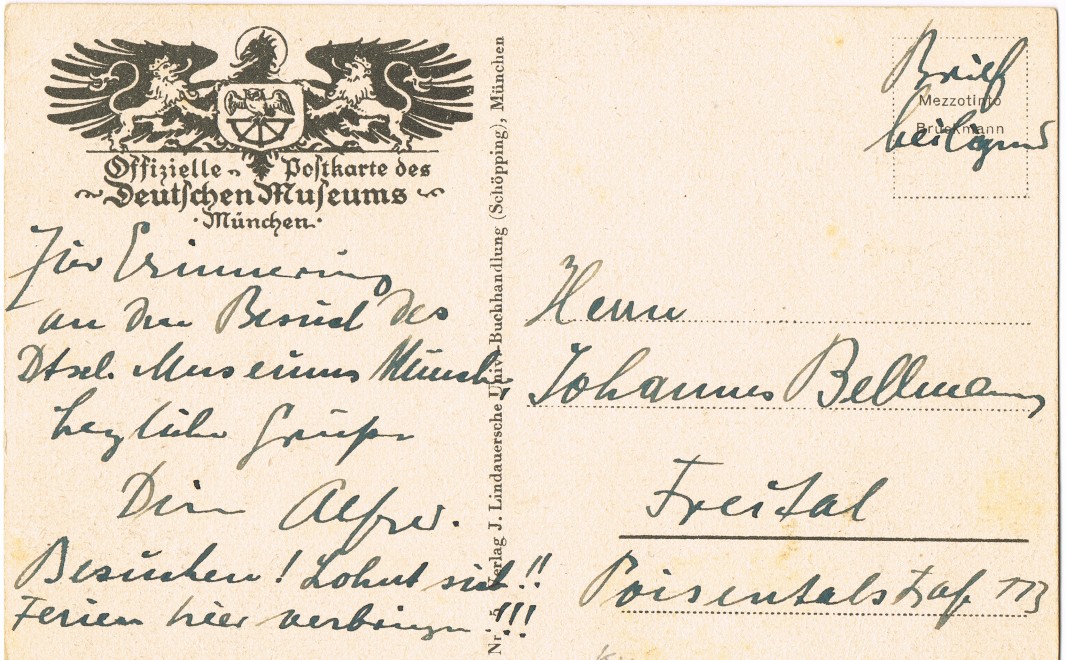 Offizielle Postkarte des
Deutschen Museums
München
Zur Erinnerung
an den Besuch des
Dtsch. Museums Münch.
herzliche Grüße
Dein Alfred.
Besuchen! Lohnt sich!!
Ferien hier verbringen!!!
Verlag J. Lindauersche Univ.-Buchhandlung (Schöpping), München
Brief
Mezzotinto
Bruckmann
beiliegend
Herrn
Johannes Bellmann
Freital
Poisentalstraße 113